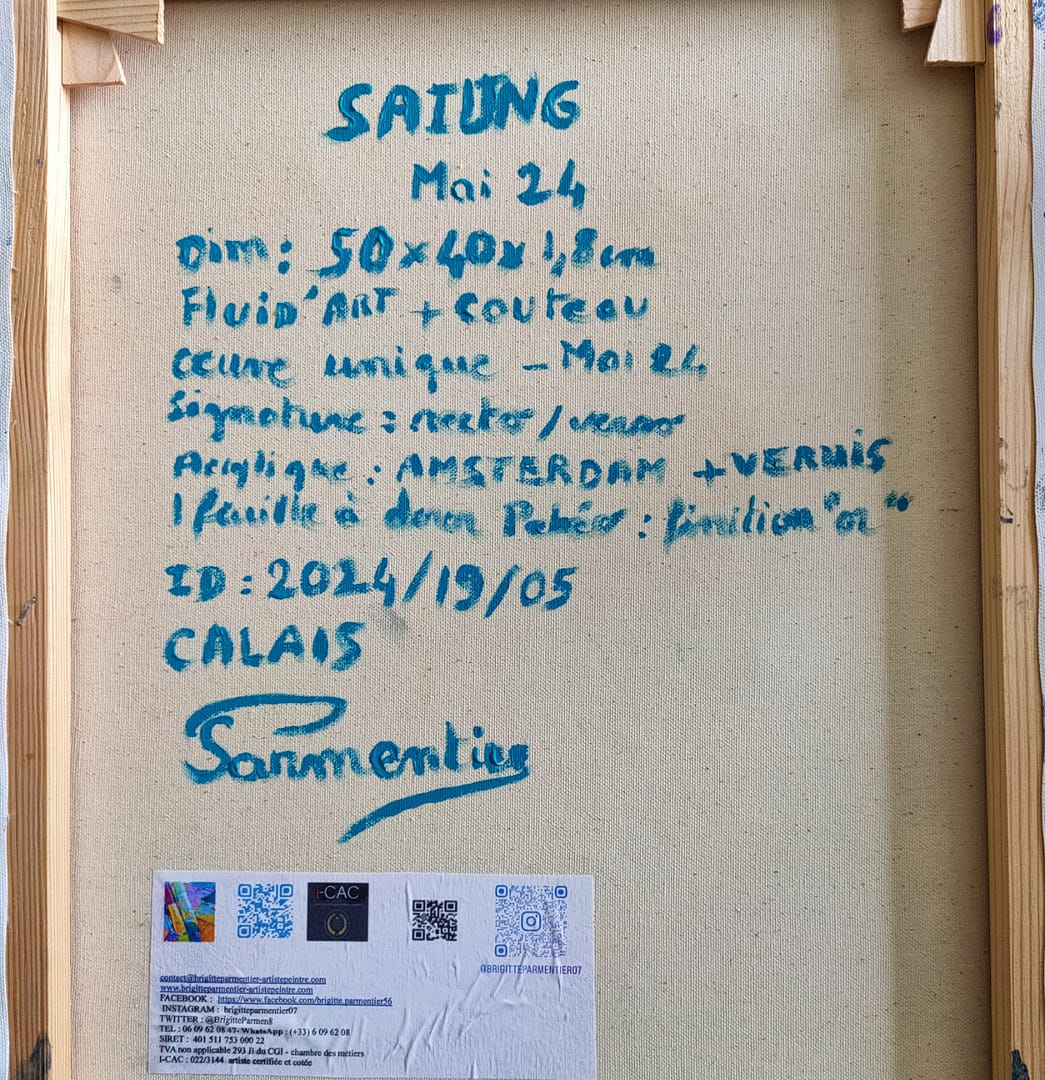 SAILING
Mai 24
Dim: 50x40x1,8cm
Fluid'ART + couteau
œuvre unique - Mai 24
Signature : recto/verso
Acrylique : AMSTERDAM + VERNIS
1 feuille à dorer Pébéo : finition "or"
ID : 2024/19/05
CALAIS
Parmentier
i-CAC
@BRIGITTEPARMENTIER07
contact@brigitteparmentier-artistepeintre.com
www.brigitteparmentier-artistepeintre.com
FACEBOOK : https://www.facebook.com/brigitte.parmentier56
INSTAGRAM : brigitteparmentier07
TWITTER : @BrigitteParmen8
TEL : 06 09 62 08 47- WhatsApp : (+33) 6 09 62 08
SIRET : 401 511 753 000 22
TVA non applicable 293 B du CGI - chambre des métiers
I-CAC : 022/3144 artiste certifiée et cotée